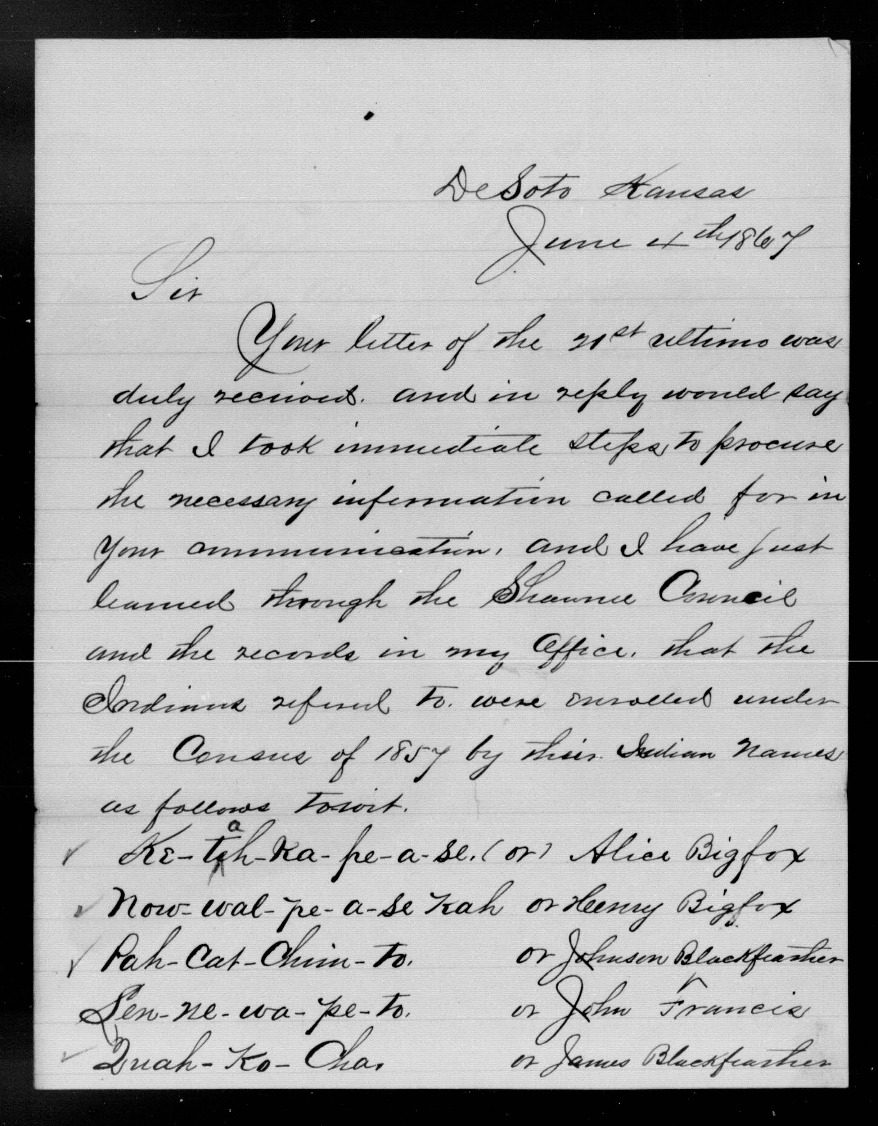 De Soto Kansas
June 4th 1867
Sir
Your letter of the 21st ultimo was
duly received. and in reply would say
that I took immediate steps to procure
the necessary information called for in
your communication, and I have just
learned through the Shawnee Council
and the records in my Office, that the
Indians refered to. were enrolled under
the Census of 1857 by their Indian names
as follows towit.
Ke-tah-Ka-pe-a-se. (or) Alice Bigfox
Now-wal-pe-a-se Kah or Henry Bigfox
Pah-Cat-Chim-to. or Johnson Blackfeather
Sen-ne-wa-pe-to. or John Francis
Quah-Ko-Cha. or James Blackfeather